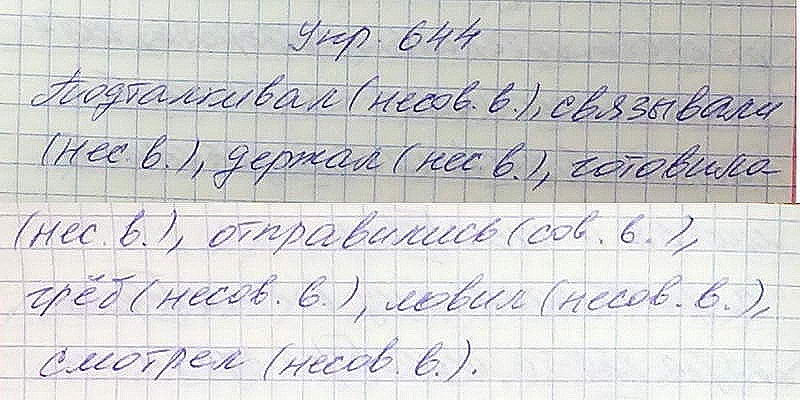 Упр. 644
Подталкивал (несов. в.), связывали
(нес. в.), держал (нес. в.), готовила
(нес. в.), отправились (сов. в.),
грёб (несов. в.), ловил (несов. в.),
смотрел (несов. в.).